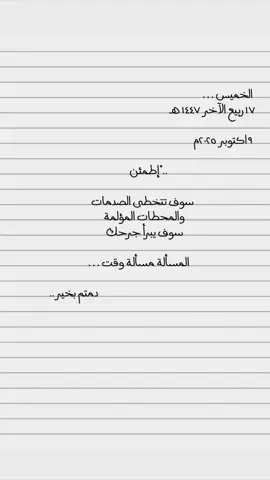 الخميس ...
١٧ ربيع الآخر ١٤٤٧ هـ
٩ اكتوبر ٢٠٢٥م
.."إطمئن
سوف تتخطى الصدمات
والمحطات المؤلمة
سوف يبرأ جرحك
المسألة مسألة وقت ...
دمتم بخير ..